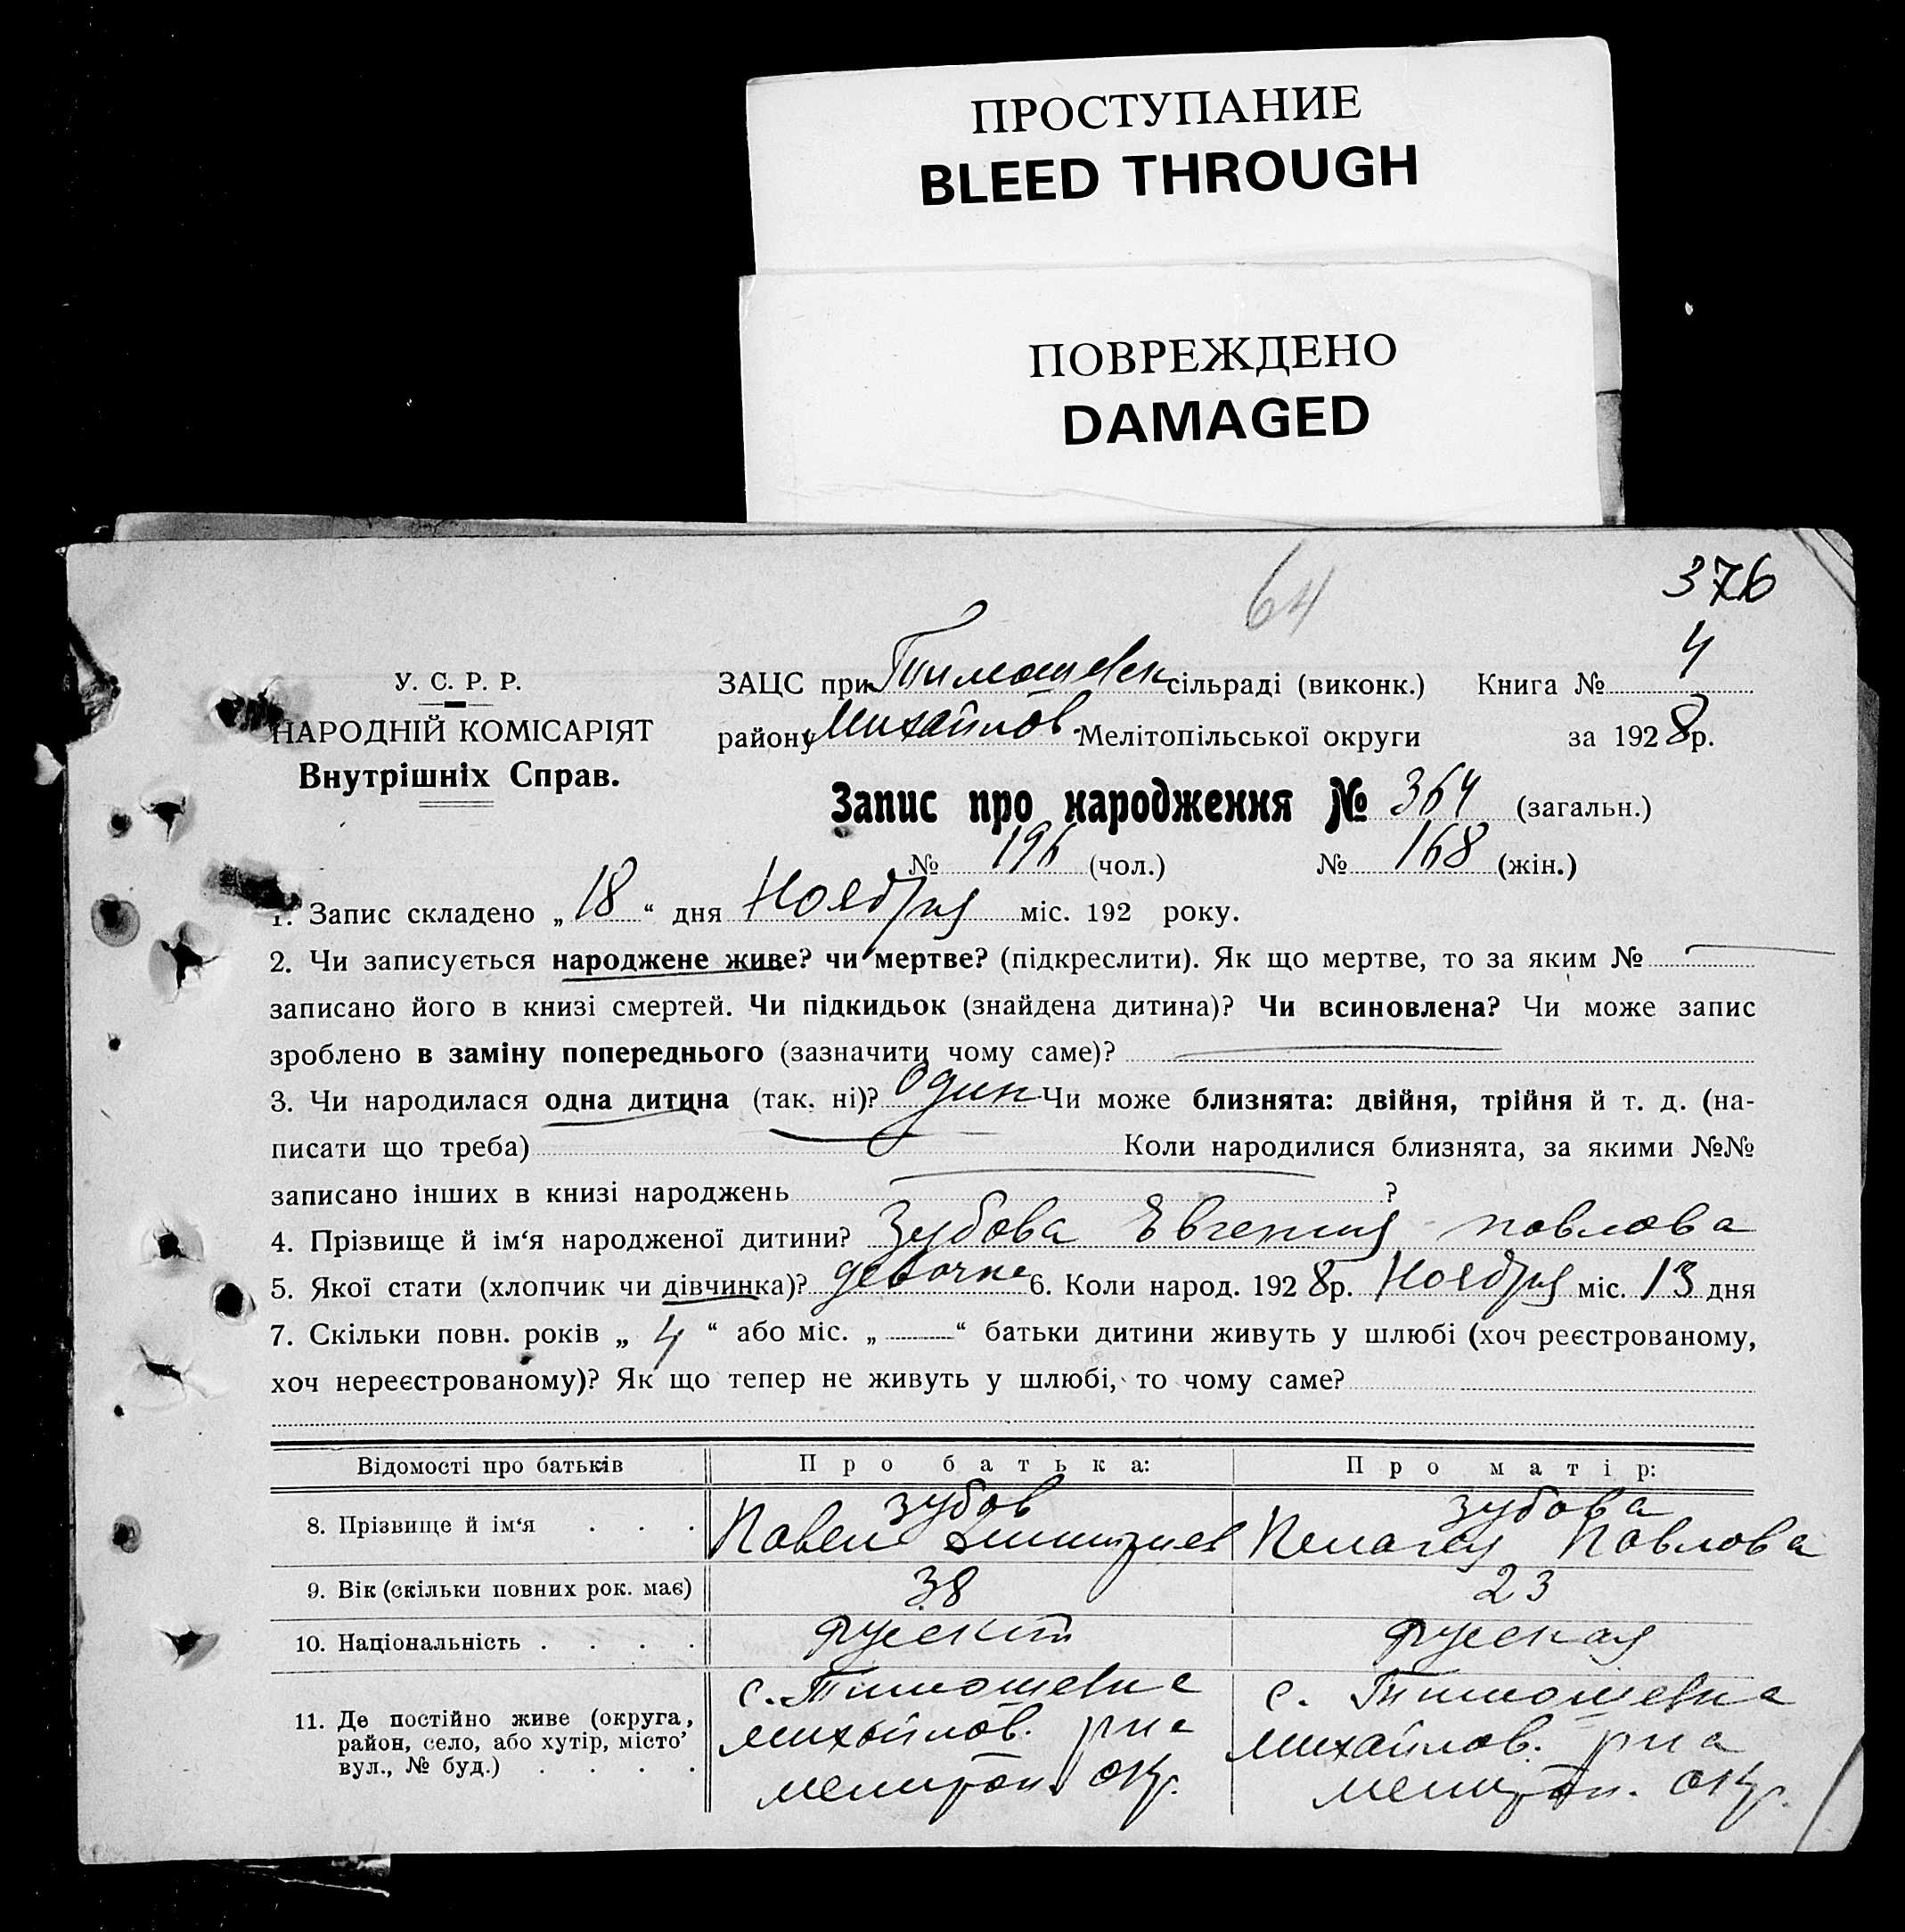 ПРОСТУПАНИЕ
BLEED THROUGH
ПОВРЕЖДЕНО
DAMAGED
64
376
У. С. Р. Р.
НАРОДНІЙ КОМІСАРІЯТ
Внутрішніх Справ.
ЗАЦС при Тимошевск сільраді (виконк.) Книга № 4
району Михайлов. Мелітопільської округи за 1928р.
Запис про народження № 364 (загальн.)
№ 196 (чол.) № 168 (жін.)
1. Запис складено „ 18 “ дня Ноября міс. 192 року.
2. Чи записується народжене живе? чи мертве? (підкреслити). Як що мертве, то за яким №
записано його в книзі смертей. Чи підкидьок (знайдена дитина)? Чи всиновлена? Чи може запис
зроблено в заміну попереднього (зазначити чому саме)?
3. Чи народилася одна дитина (так. ні)? один Чи може близнята: двійня, трійня й т. д. (на-
писати що треба) Коли народилися близнята, за якими №№
записано інших в книзі народжень ?
4. Прізвище й ім‘я народженої дитини? Зубова Евгения павлова
5. Якої стати (хлопчик чи дівчинка)? девочка 6. Коли народ. 1928р. Ноября міс. 13 дня
7. Скільки повн. років „ 4 “ або міс. „ “ батьки дитини живуть у шлюбі (хоч реєстрованому,
хоч нереєстрованому)? Як що тепер не живуть у шлюбі, то чому саме?
Відомості про батьків Про батька: Про матір:
8. Прізвище й ім‘я . . . Зубов Павел Дмитриев Зубова Пелагея Павлова
9. Вік (скільки повних рок. має) 38 23
10. Національність . . . . руский руская
11. Де постійно живе (округа, с. Тимошевка с. Тимошевка
район, село, або хутір, місто михайлов. рна михайлов. рна
вул., № буд.) . . . . мелитоп. окр. мелитоп. окр.